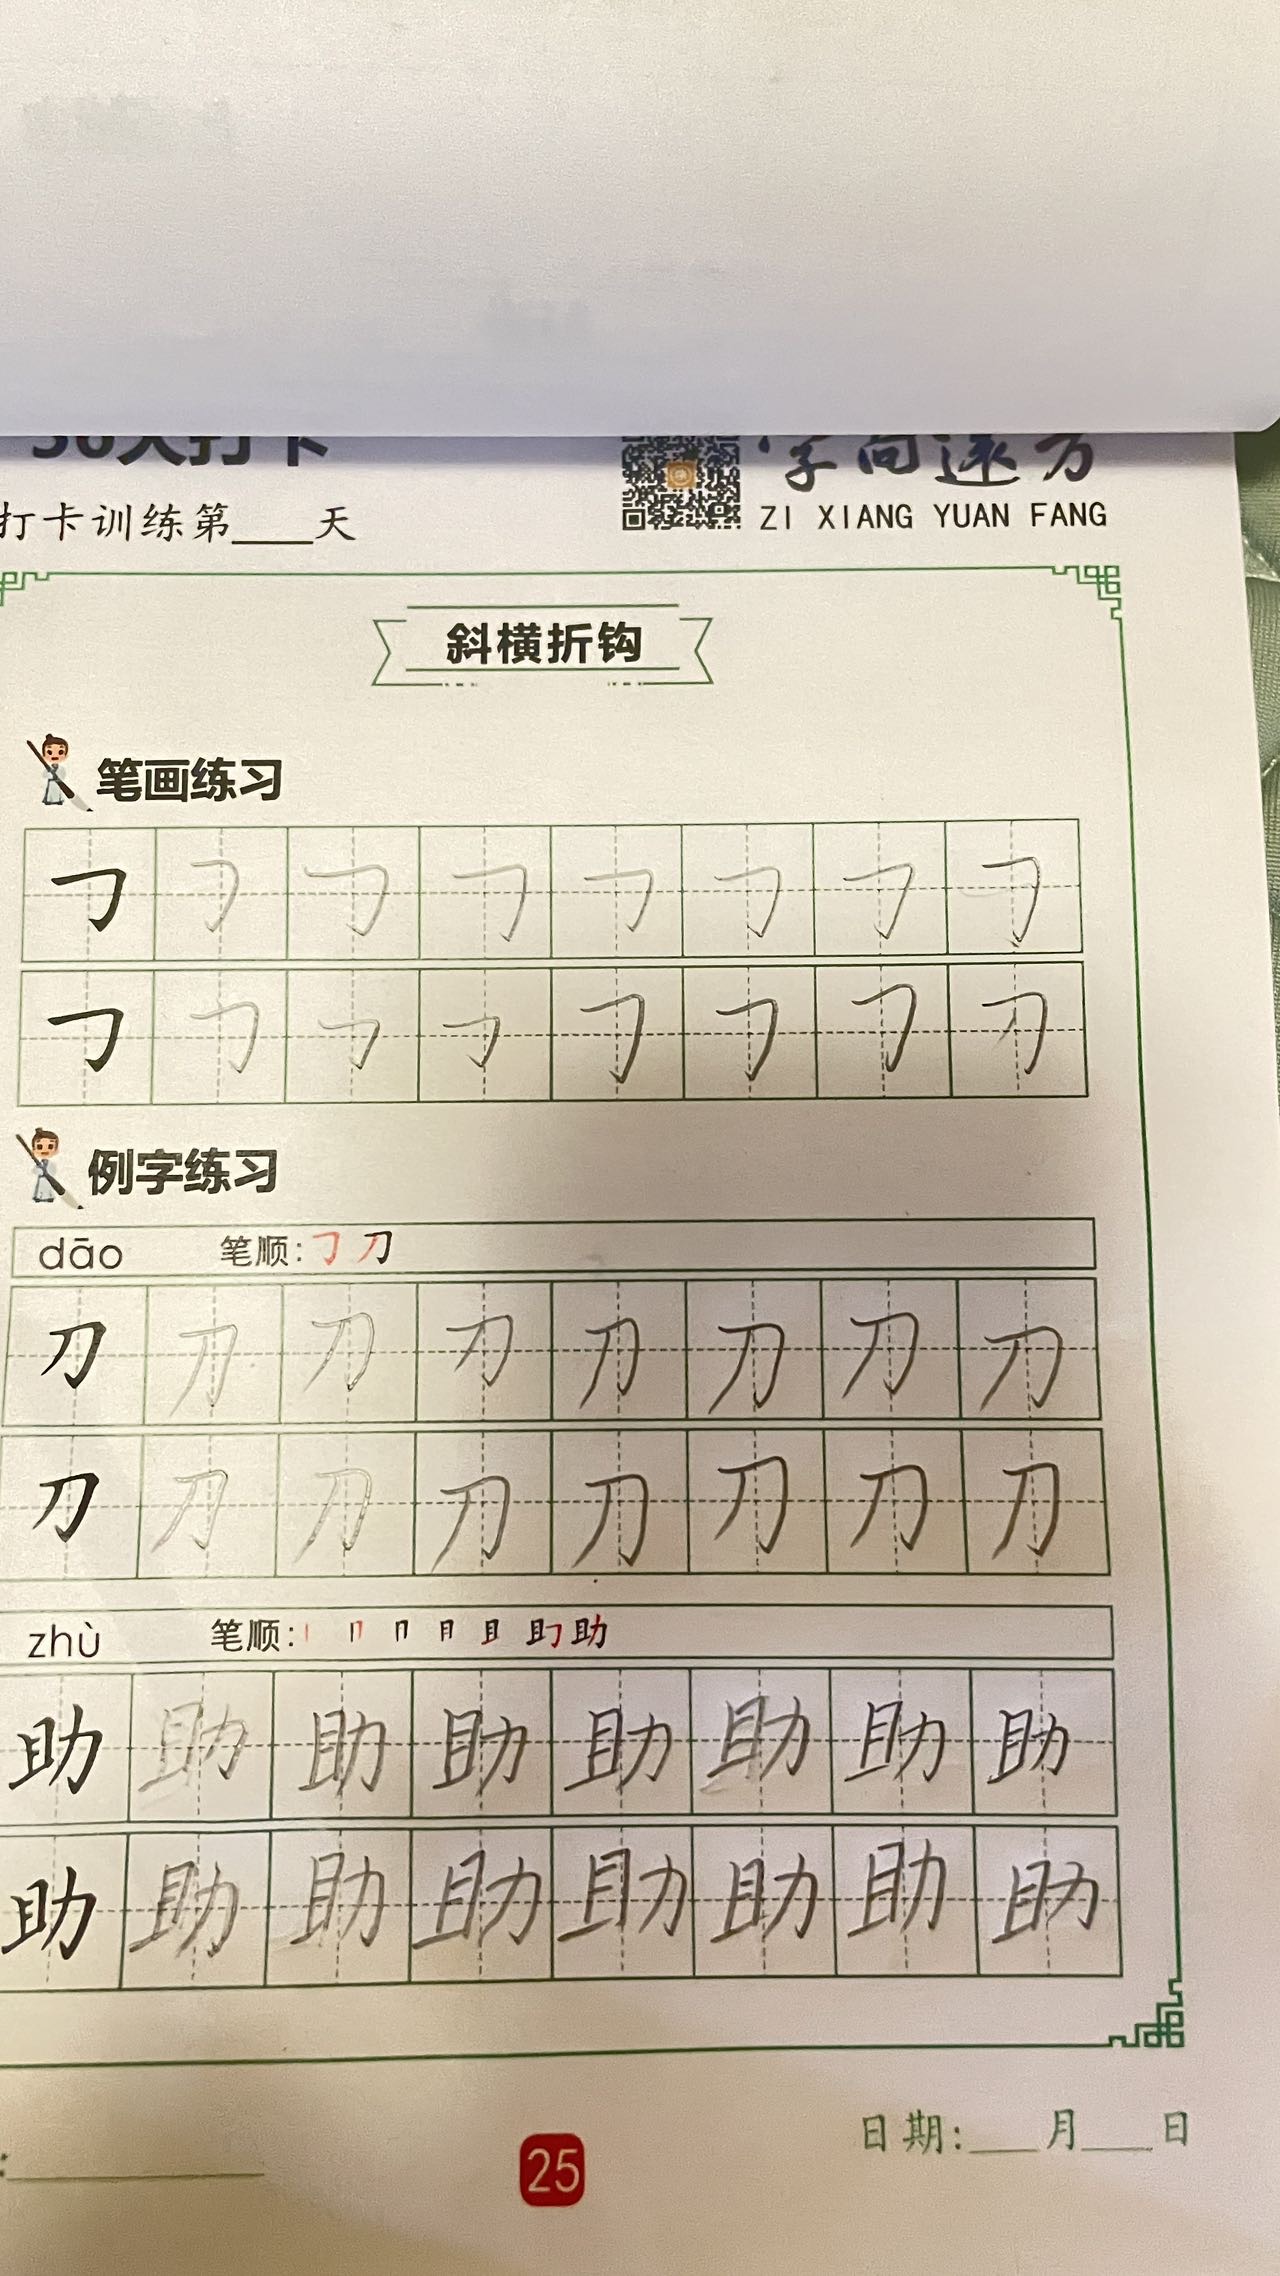 打卡训练第____天
字向远方
ZI XIANG YUAN FANG
斜横折钩
笔画练习
例字练习
dāo 笔顺: 刀
刀 刀 刀 刀 刀 刀 刀 刀
刀 刀 刀 刀 刀 刀 刀 刀
zhù 笔顺: 丨 冂 月 且 助
助 助 助 助 助 助 助 助
助 助 助 助 助 助 助 助
日期:___月___日
25